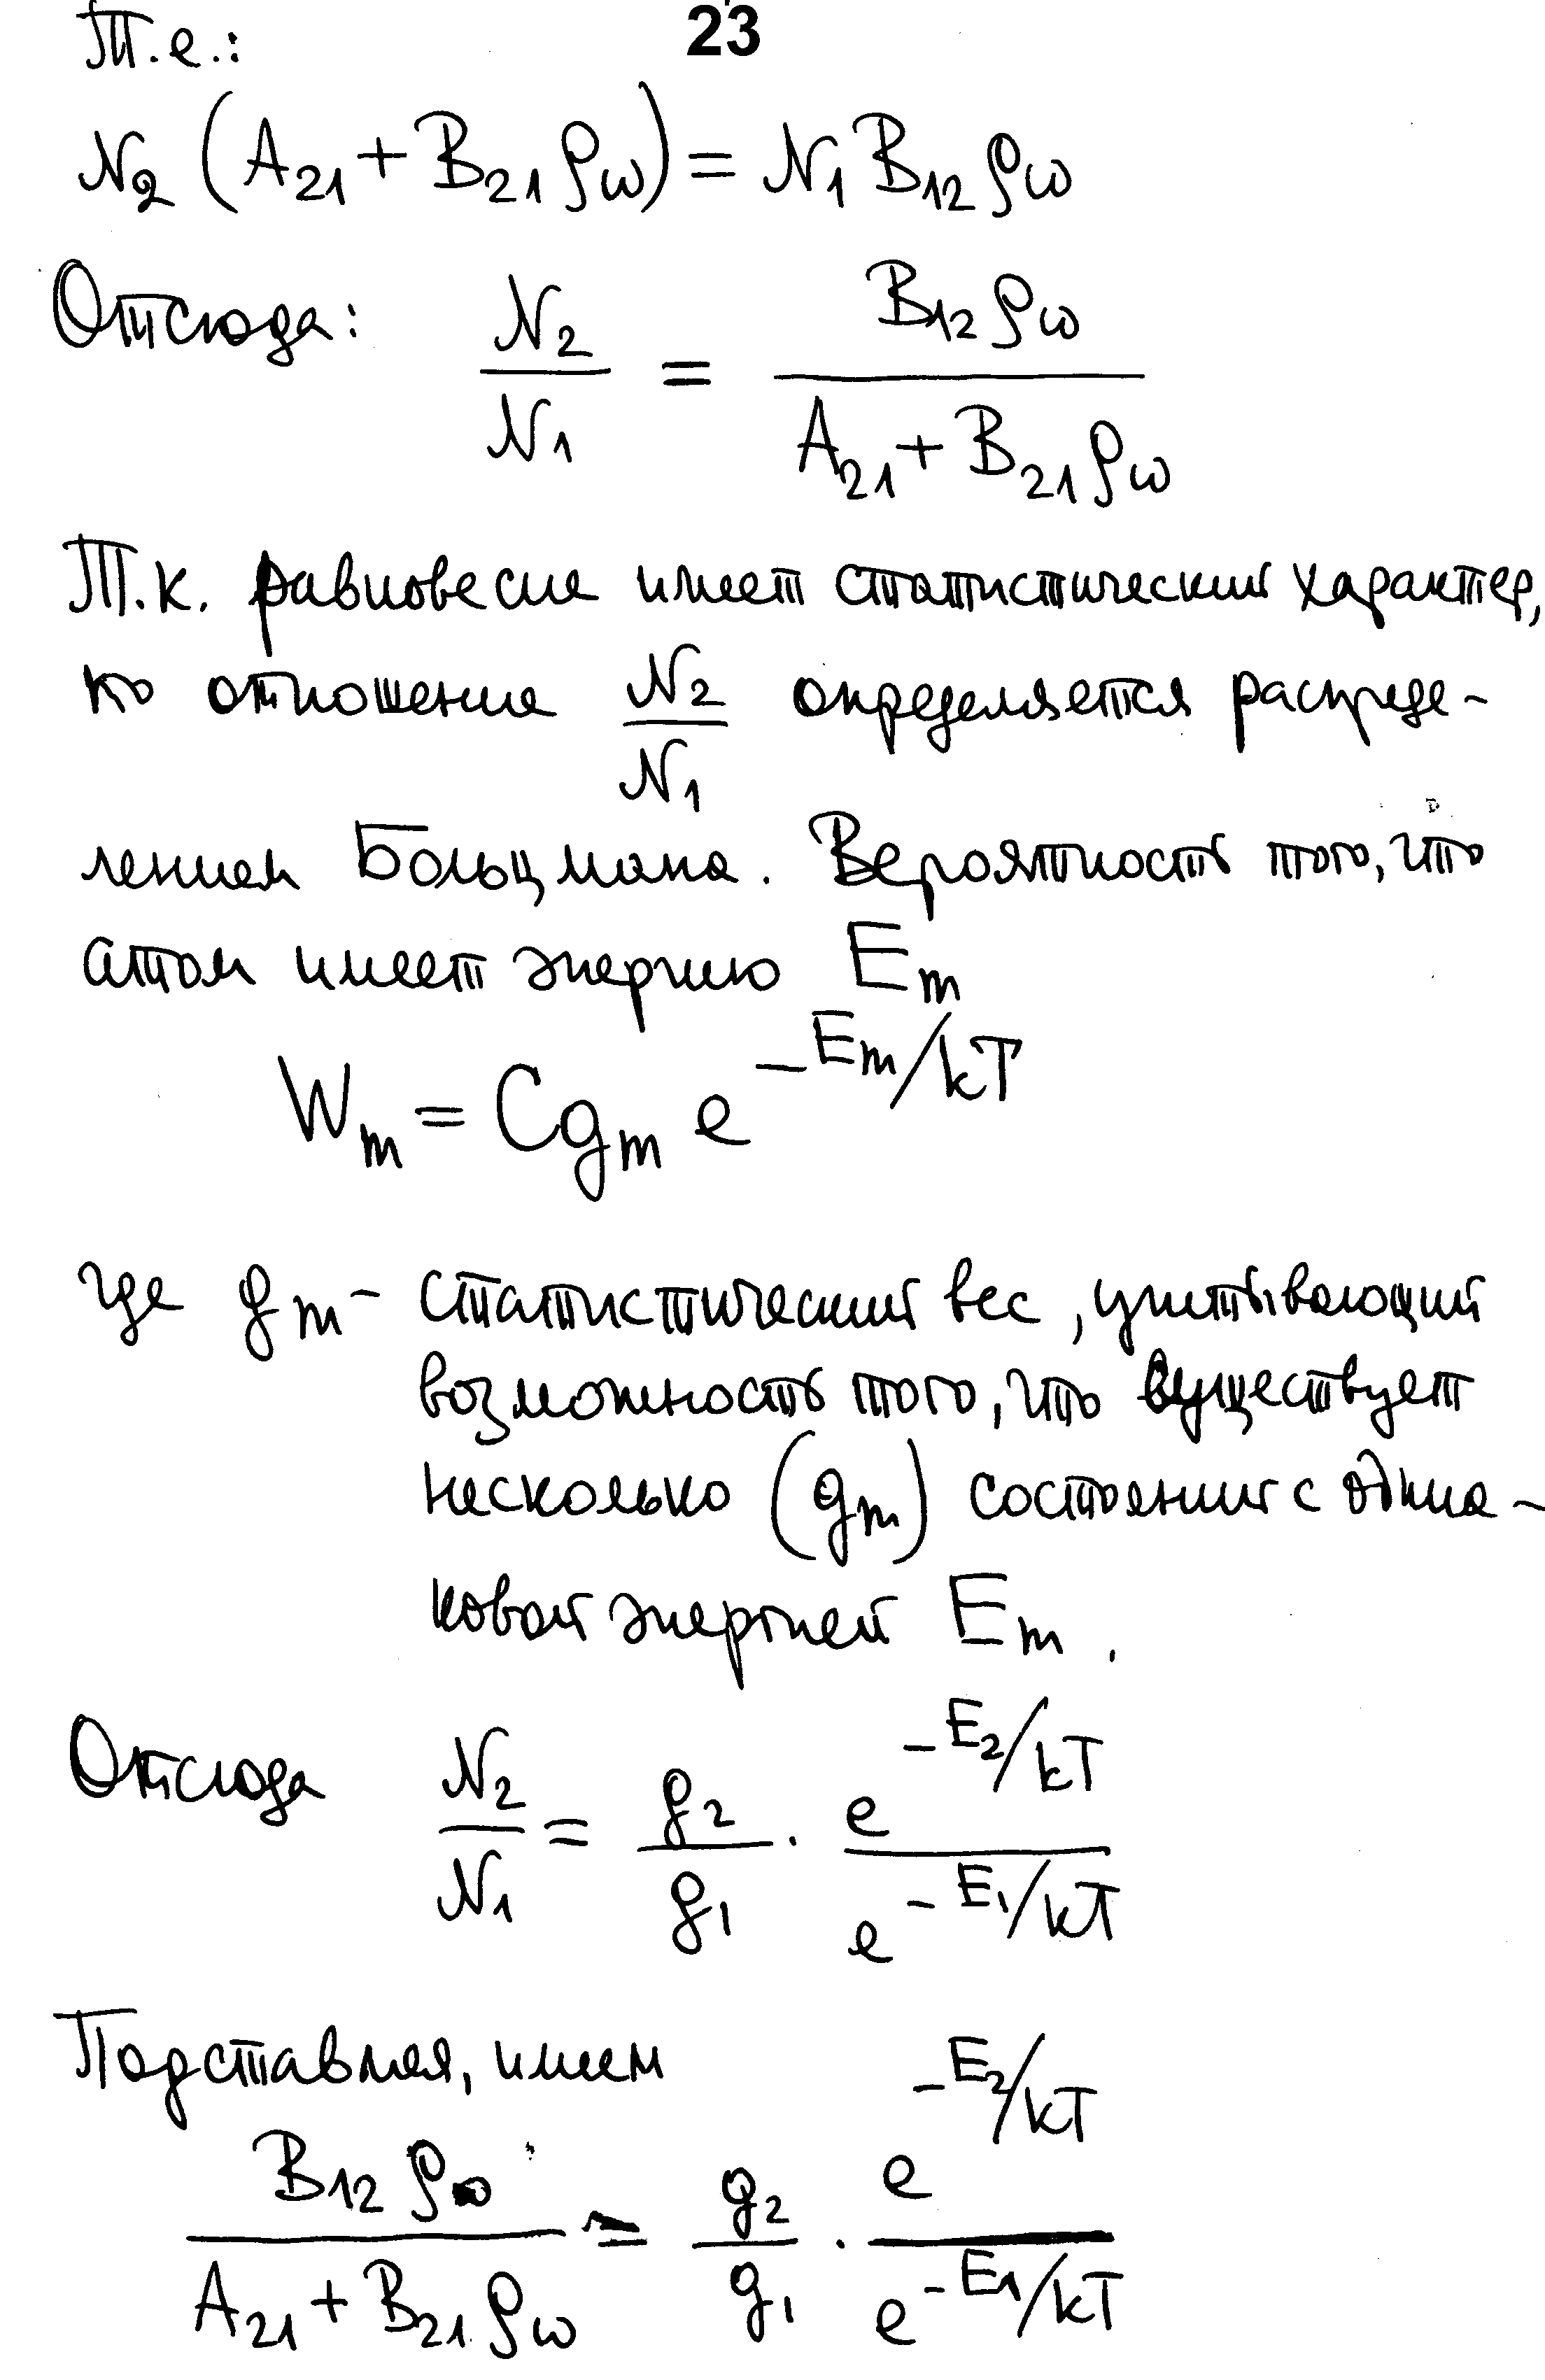 23
Т.е.:
N₂ (A₂₁ + B₂₁ ρω) = N₁ B₁₂ ρω
Отсюда: N₂/N₁ = B₁₂ ρω / (A₂₁ + B₂₁ ρω)
Т.к. равновесие имеет статистический характер,
то отношение N₂/N₁ определяется распреде-
лением Больцмана. Вероятность того, что
атом имеет энергию Em
Wm = Cgm e^(-Em/kT)
где gm - статистический вес, учитывающий
возможность того, что существует
несколько (gm) состояний с одина-
ковой энергией Em.
Отсюда N₂/N₁ = g₂/g₁ · e^(-E₂/kT) / e^(-E₁/kT)
Подставляя, имеем
B₁₂ ρω / (A₂₁ + B₂₁ ρω) = g₂/g₁ · e^(-E₂/kT) / e^(-E₁/kT)